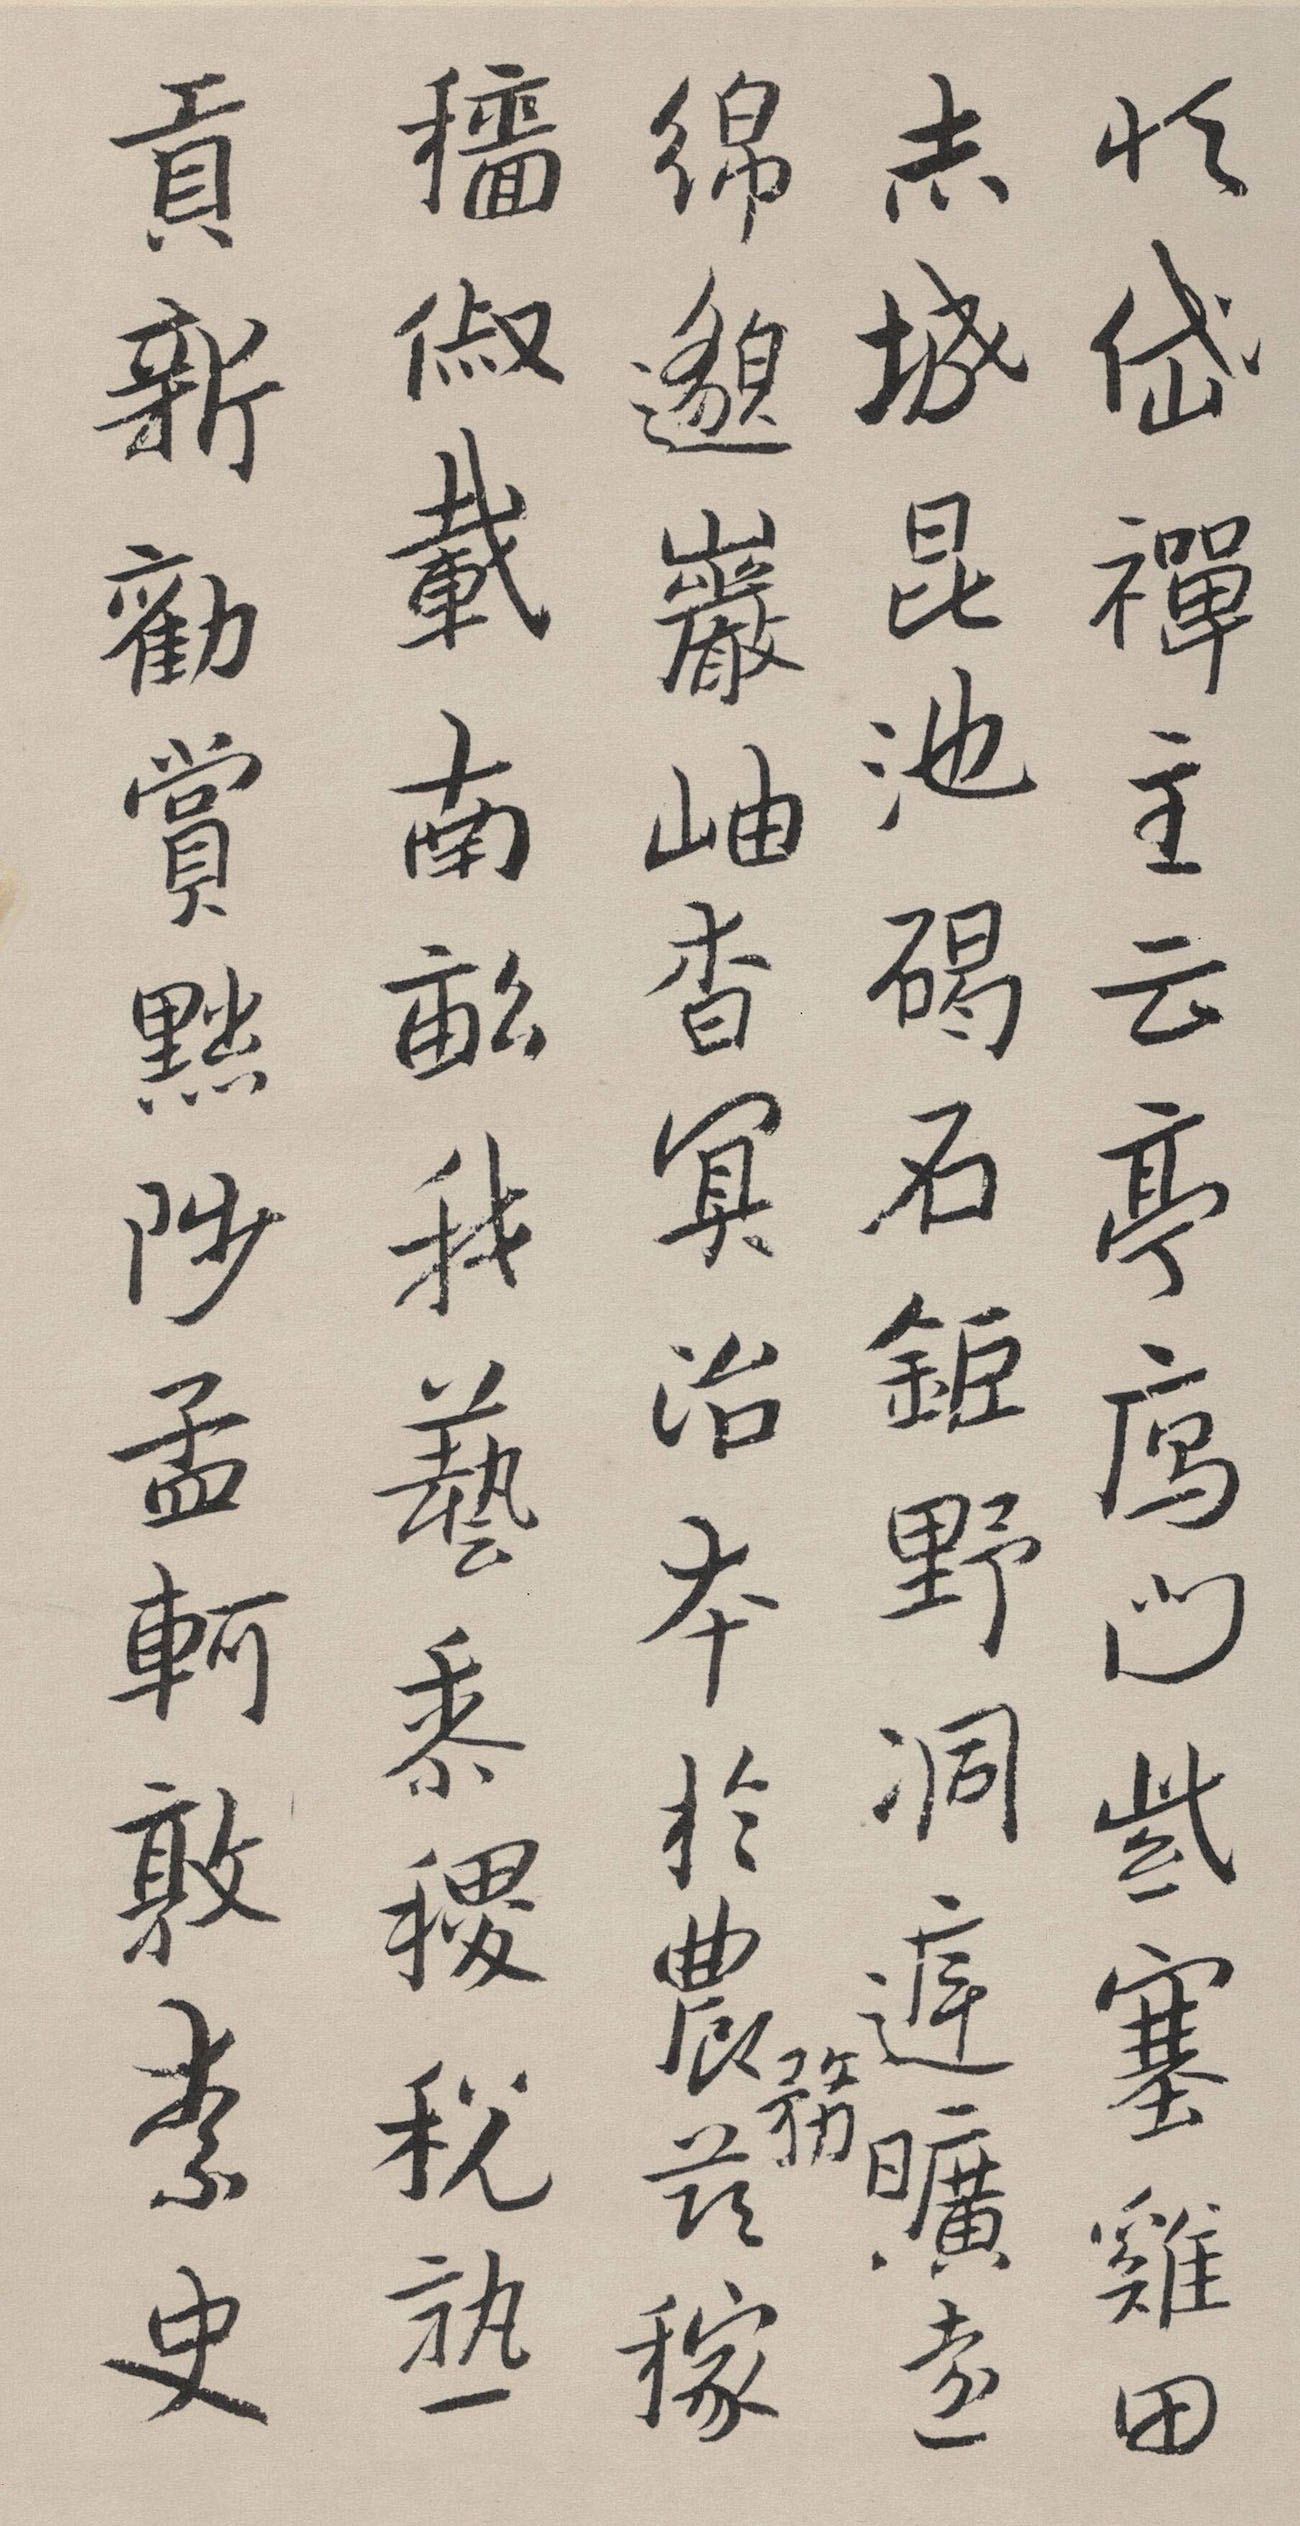 恒岱禪主云亭鴈門紫塞雞田
赤城昆池碣石鉅野洞庭曠遠
綿邈巖岫杳冥治本於農務茲稼
穡俶載南畝我藝黍稷稅熟
貢新勸賞黜陟孟軻敦素史